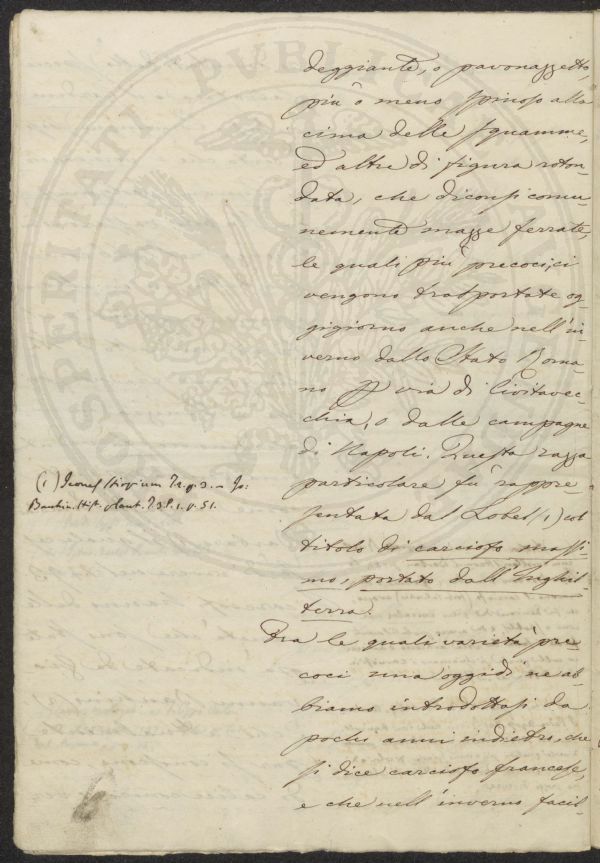 deggiante, o pavonazzetto,
più o meno spinoso alla
cima delle squamme,
ed altre di figura roton-
data, che diconsi comu-
nemente mazze ferrate,
le quali più precoci, ci
vengono trasportate og-
gigiorno anche nell'in-
verno dallo Stato Roma-
no p via di Civitavec-
chia, o dalle campagne
di Napoli. Questa razza
particolare fù rappre-
sentata dal Lobel (1) col
titolo di carciofo massi-
mo, portato dall'Inghil-
terra.
Tra le quali varietà pre-
coci una oggidì ne ab-
biamo introdottasi da
pochi anni indietro, che
si dice carciofo francese,
e che nell'inverno facil-
(1) Icones stirpium T.2. p. 3. = Jo:
Bauhin. Hist. plant. T. 3. P. 1. p. 51.
PROSPERITATI PVBLICAE